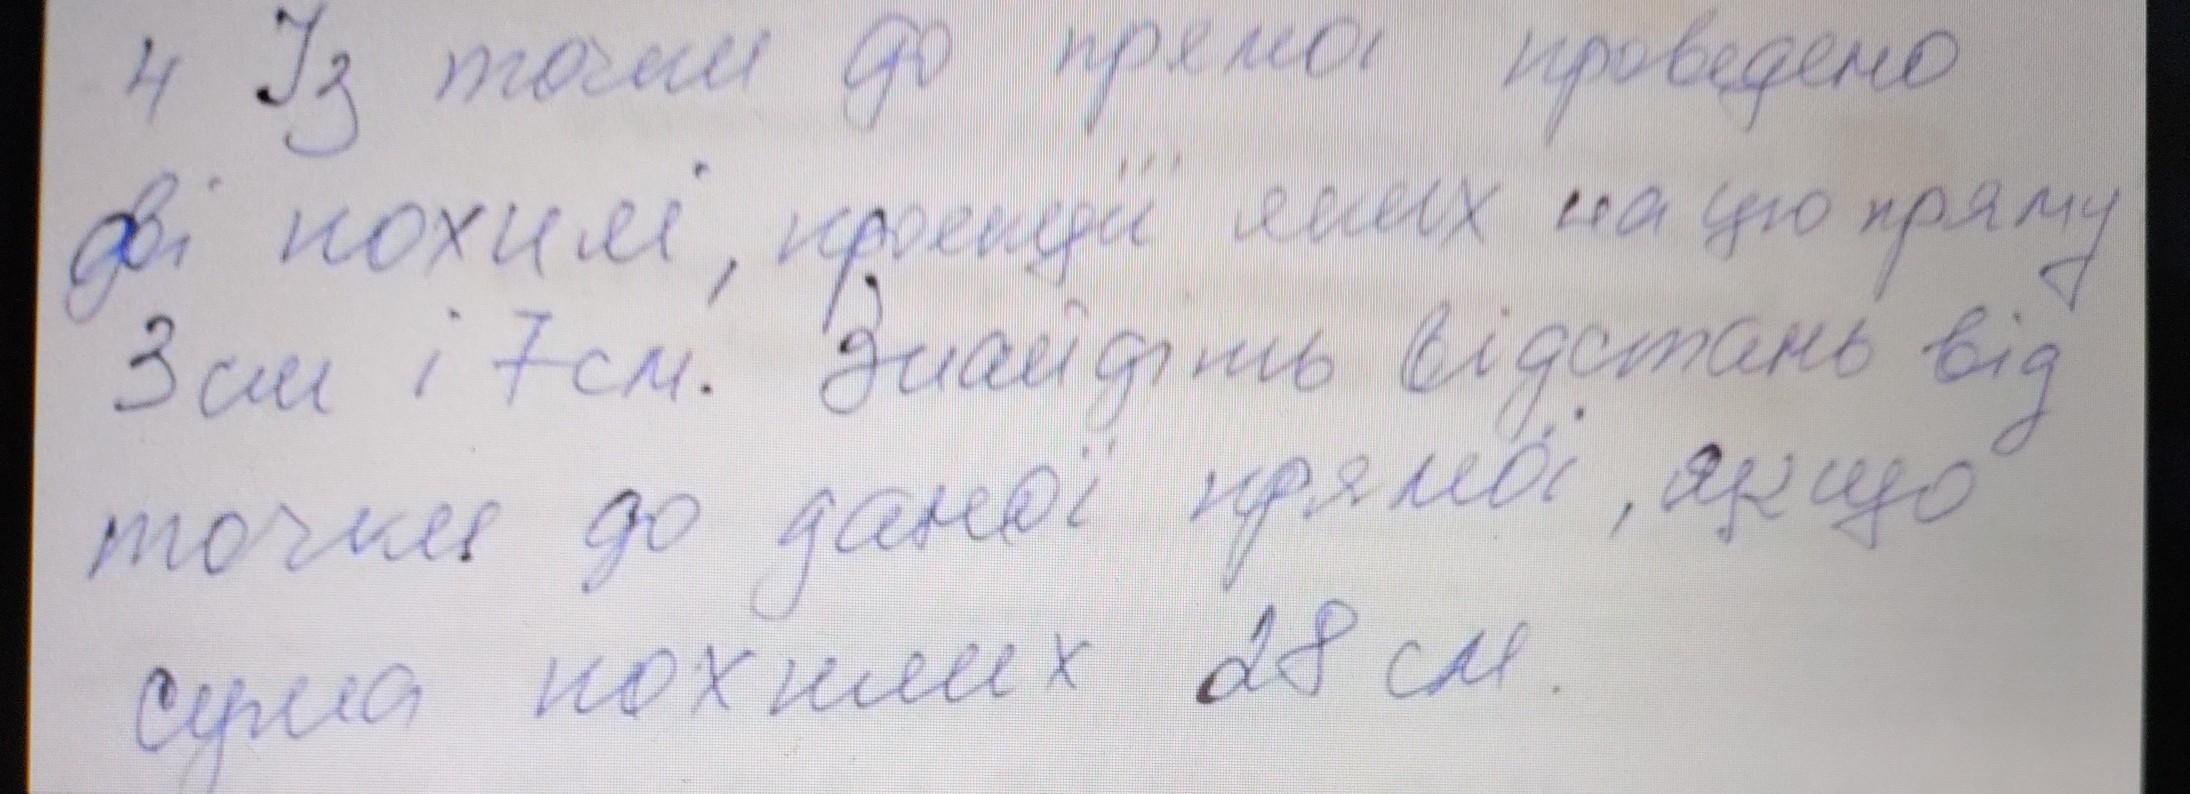 4 Із точки до прямої проведено
дві похилі, проекції яких на цю пряму
3 см і 7 см. Знайдіть відстань від
точки до даної прямої, якщо
сума похилих 28 см.